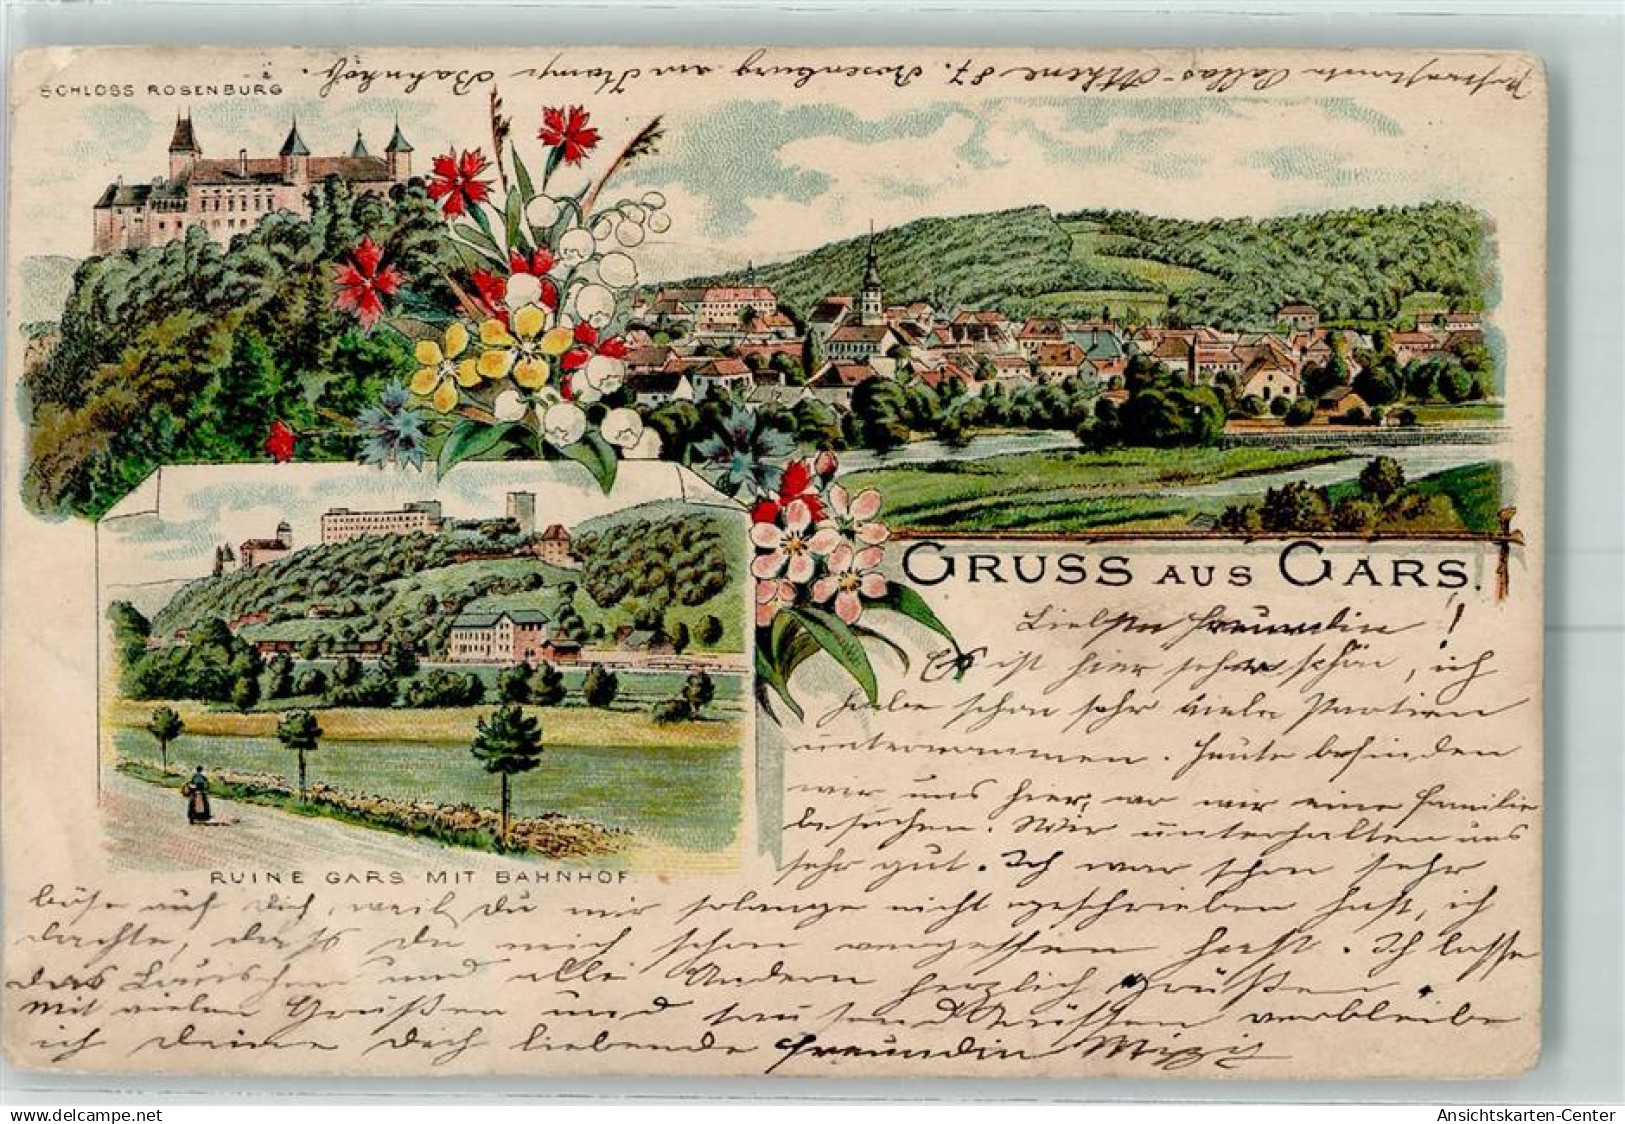 SCHLOSS ROSENBURG
Pallas-Athene 87. Rosenburg am Kamp Bahnhof.
GRUSS AUS GARS.
Liebste Freundin!
Es ist hier sehr schön, ich
habe schon sehr viele Partien
unternommen. Heute befinden
wir uns hier, wo wir eine Familie
besuchen. Wir unterhalten uns
sehr gut. Ich war schon sehr
RUINE GARS MIT BAHNHOF.
böse auf Dich, weil Du mir solange nicht geschrieben hast, ich
dachte, dass du mich schon vergessen hast. Ich lasse
das und alle Andern herzlich Grüßen.
Mit vielen Grüßen und tausend Küssen verbleibe
ich deine Dich liebende Freundin Mizzi
delcampe.net
Ansichtskarten-Center